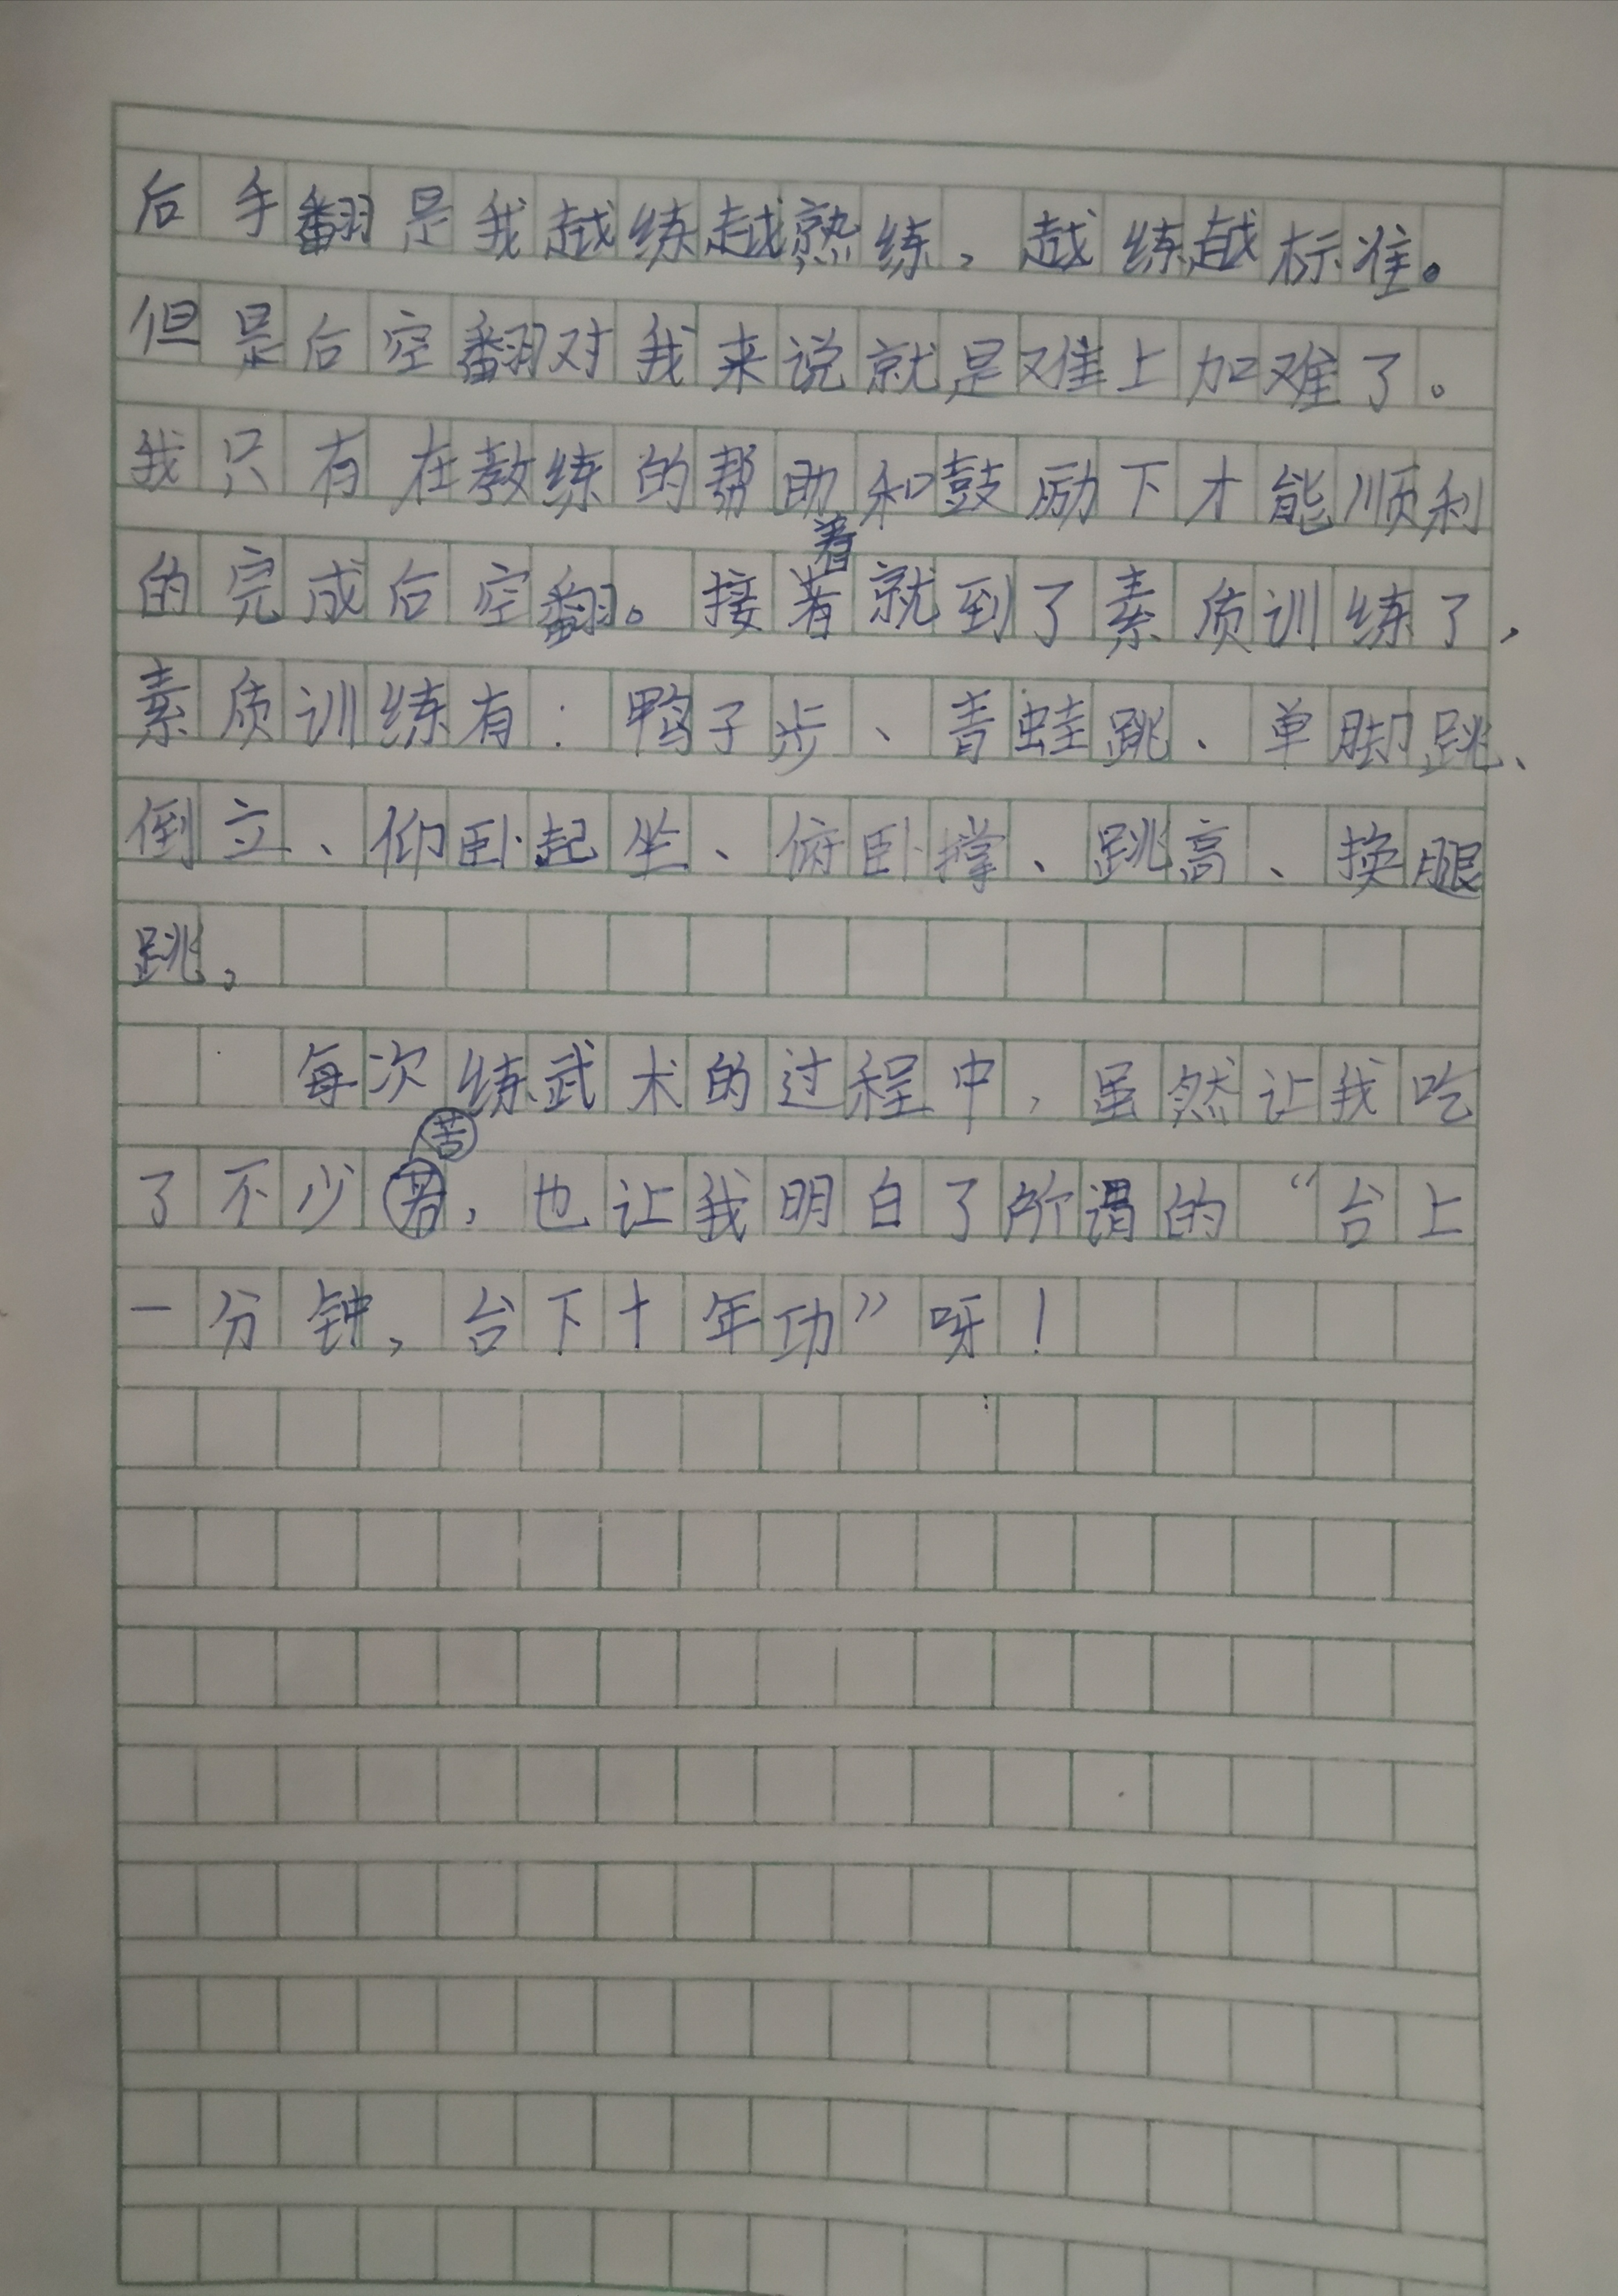 后手翻是我越练越熟练，越练越标准。
但是后空翻对我来说就是难上加难了。
我只有在教练的帮助和鼓励下才能顺利
的完成后空翻。接着就到了素质训练了，
素质训练有：鸭子步、青蛙跳、单脚跳、
倒立、仰卧起坐、俯卧撑、跳高、换腿
跳，
每次练武术的过程中，虽然让我吃
了不少苦，也让我明白了所谓的“台上
一分钟，台下十年功”呀！